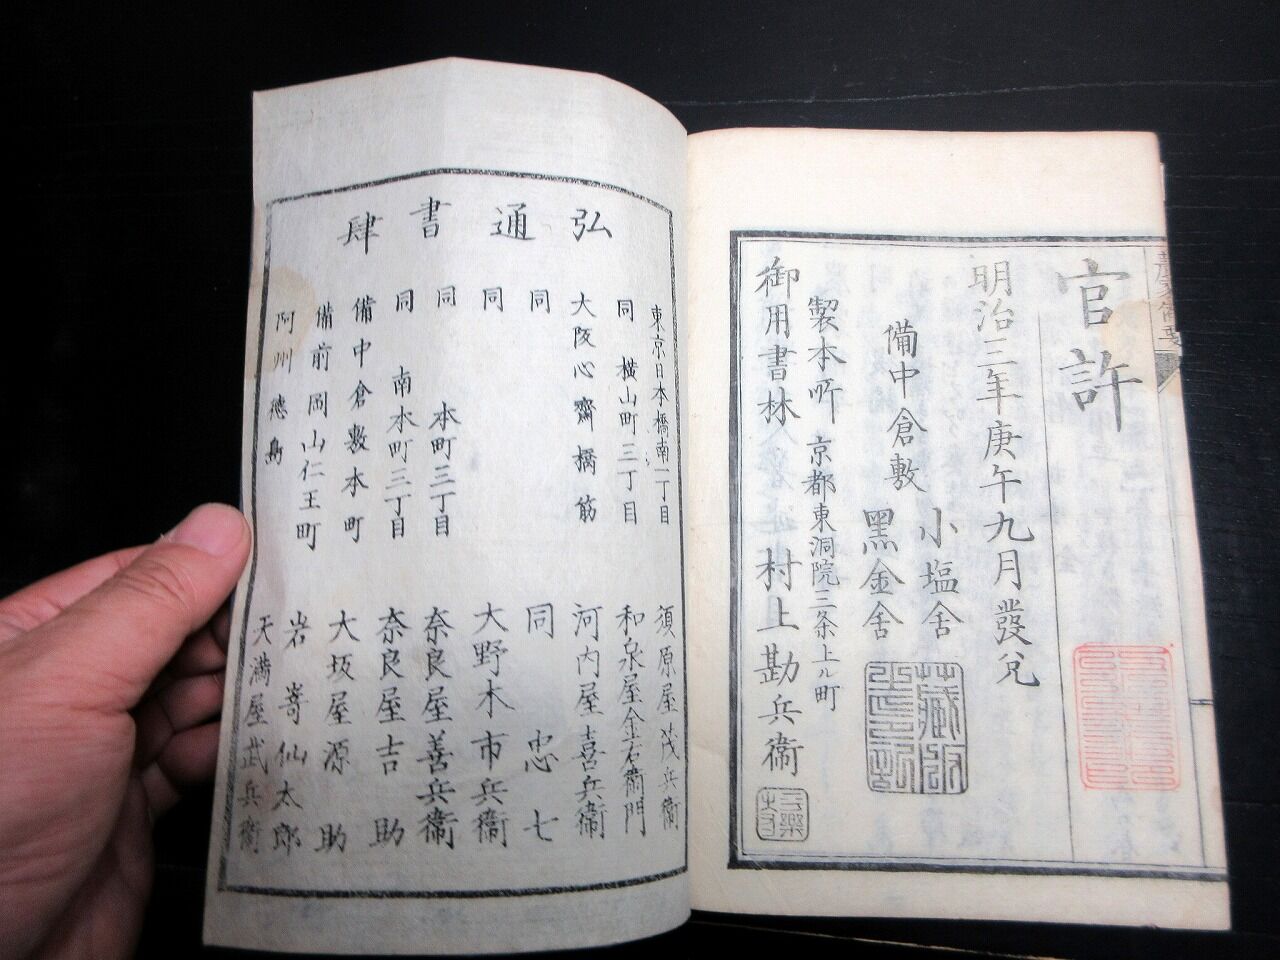 官許
明治三年庚午九月發兌
備中倉敷
小塩舍
黑金舍
製本所 京都東洞院三条上ル町
御用書林 村上勘兵衞
弘通書肆
東京日本橋南一丁目 須原屋茂兵衞
同 橫山町三丁目 和泉屋金右衞門
大阪心齋橋筋 河内屋喜兵衞
同 同 忠七
同 大野木市兵衞
同 本町三丁目 奈良屋善兵衞
同 南本町三丁目 奈良屋吉助
備中倉敷本町 大坂屋源助
備前岡山仁王町 岩嵜仙太郎
阿州德島 天満屋武兵衞